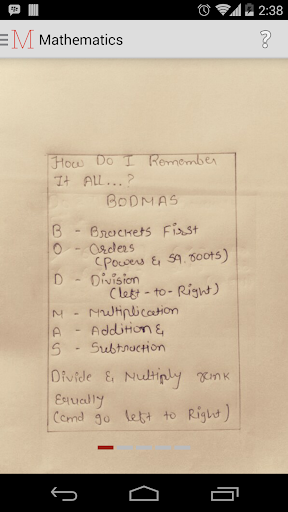 2:38
M Mathematics ?
How Do I Remember
It All...?
BODMAS
B - Brackets First
O - Orders
(Powers & sq. roots)
D - Division
(left-to-Right)
M - Multiplication
A - Addition &
S - Subtraction
Divide & Multiply rank
Equally
(and go left to Right)